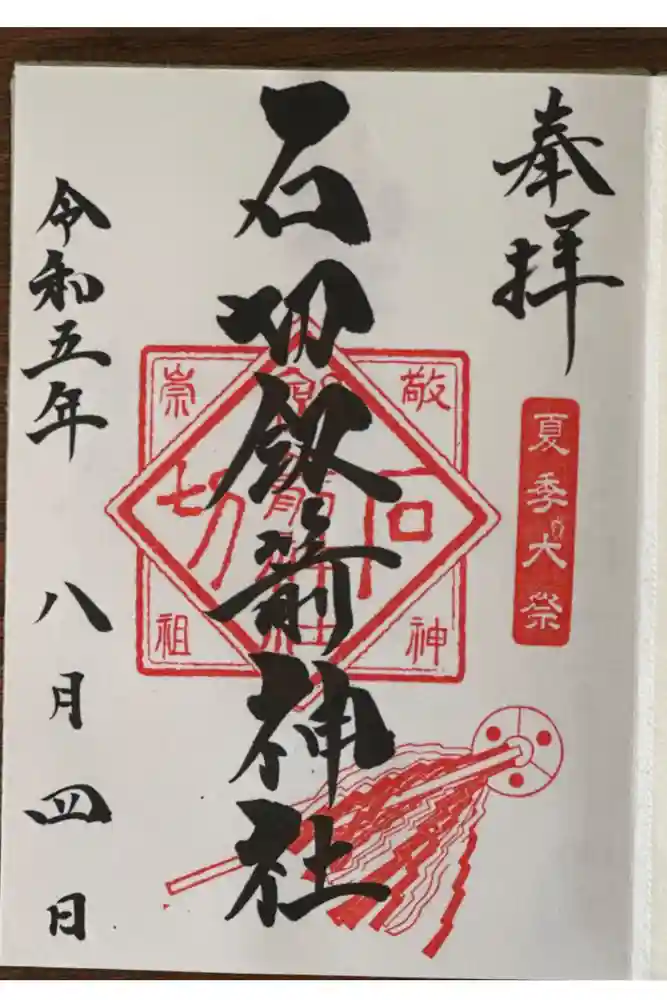 奉拝
夏季大祭
石切劔箭神社
敬神
崇祖
令和五年
八月四日